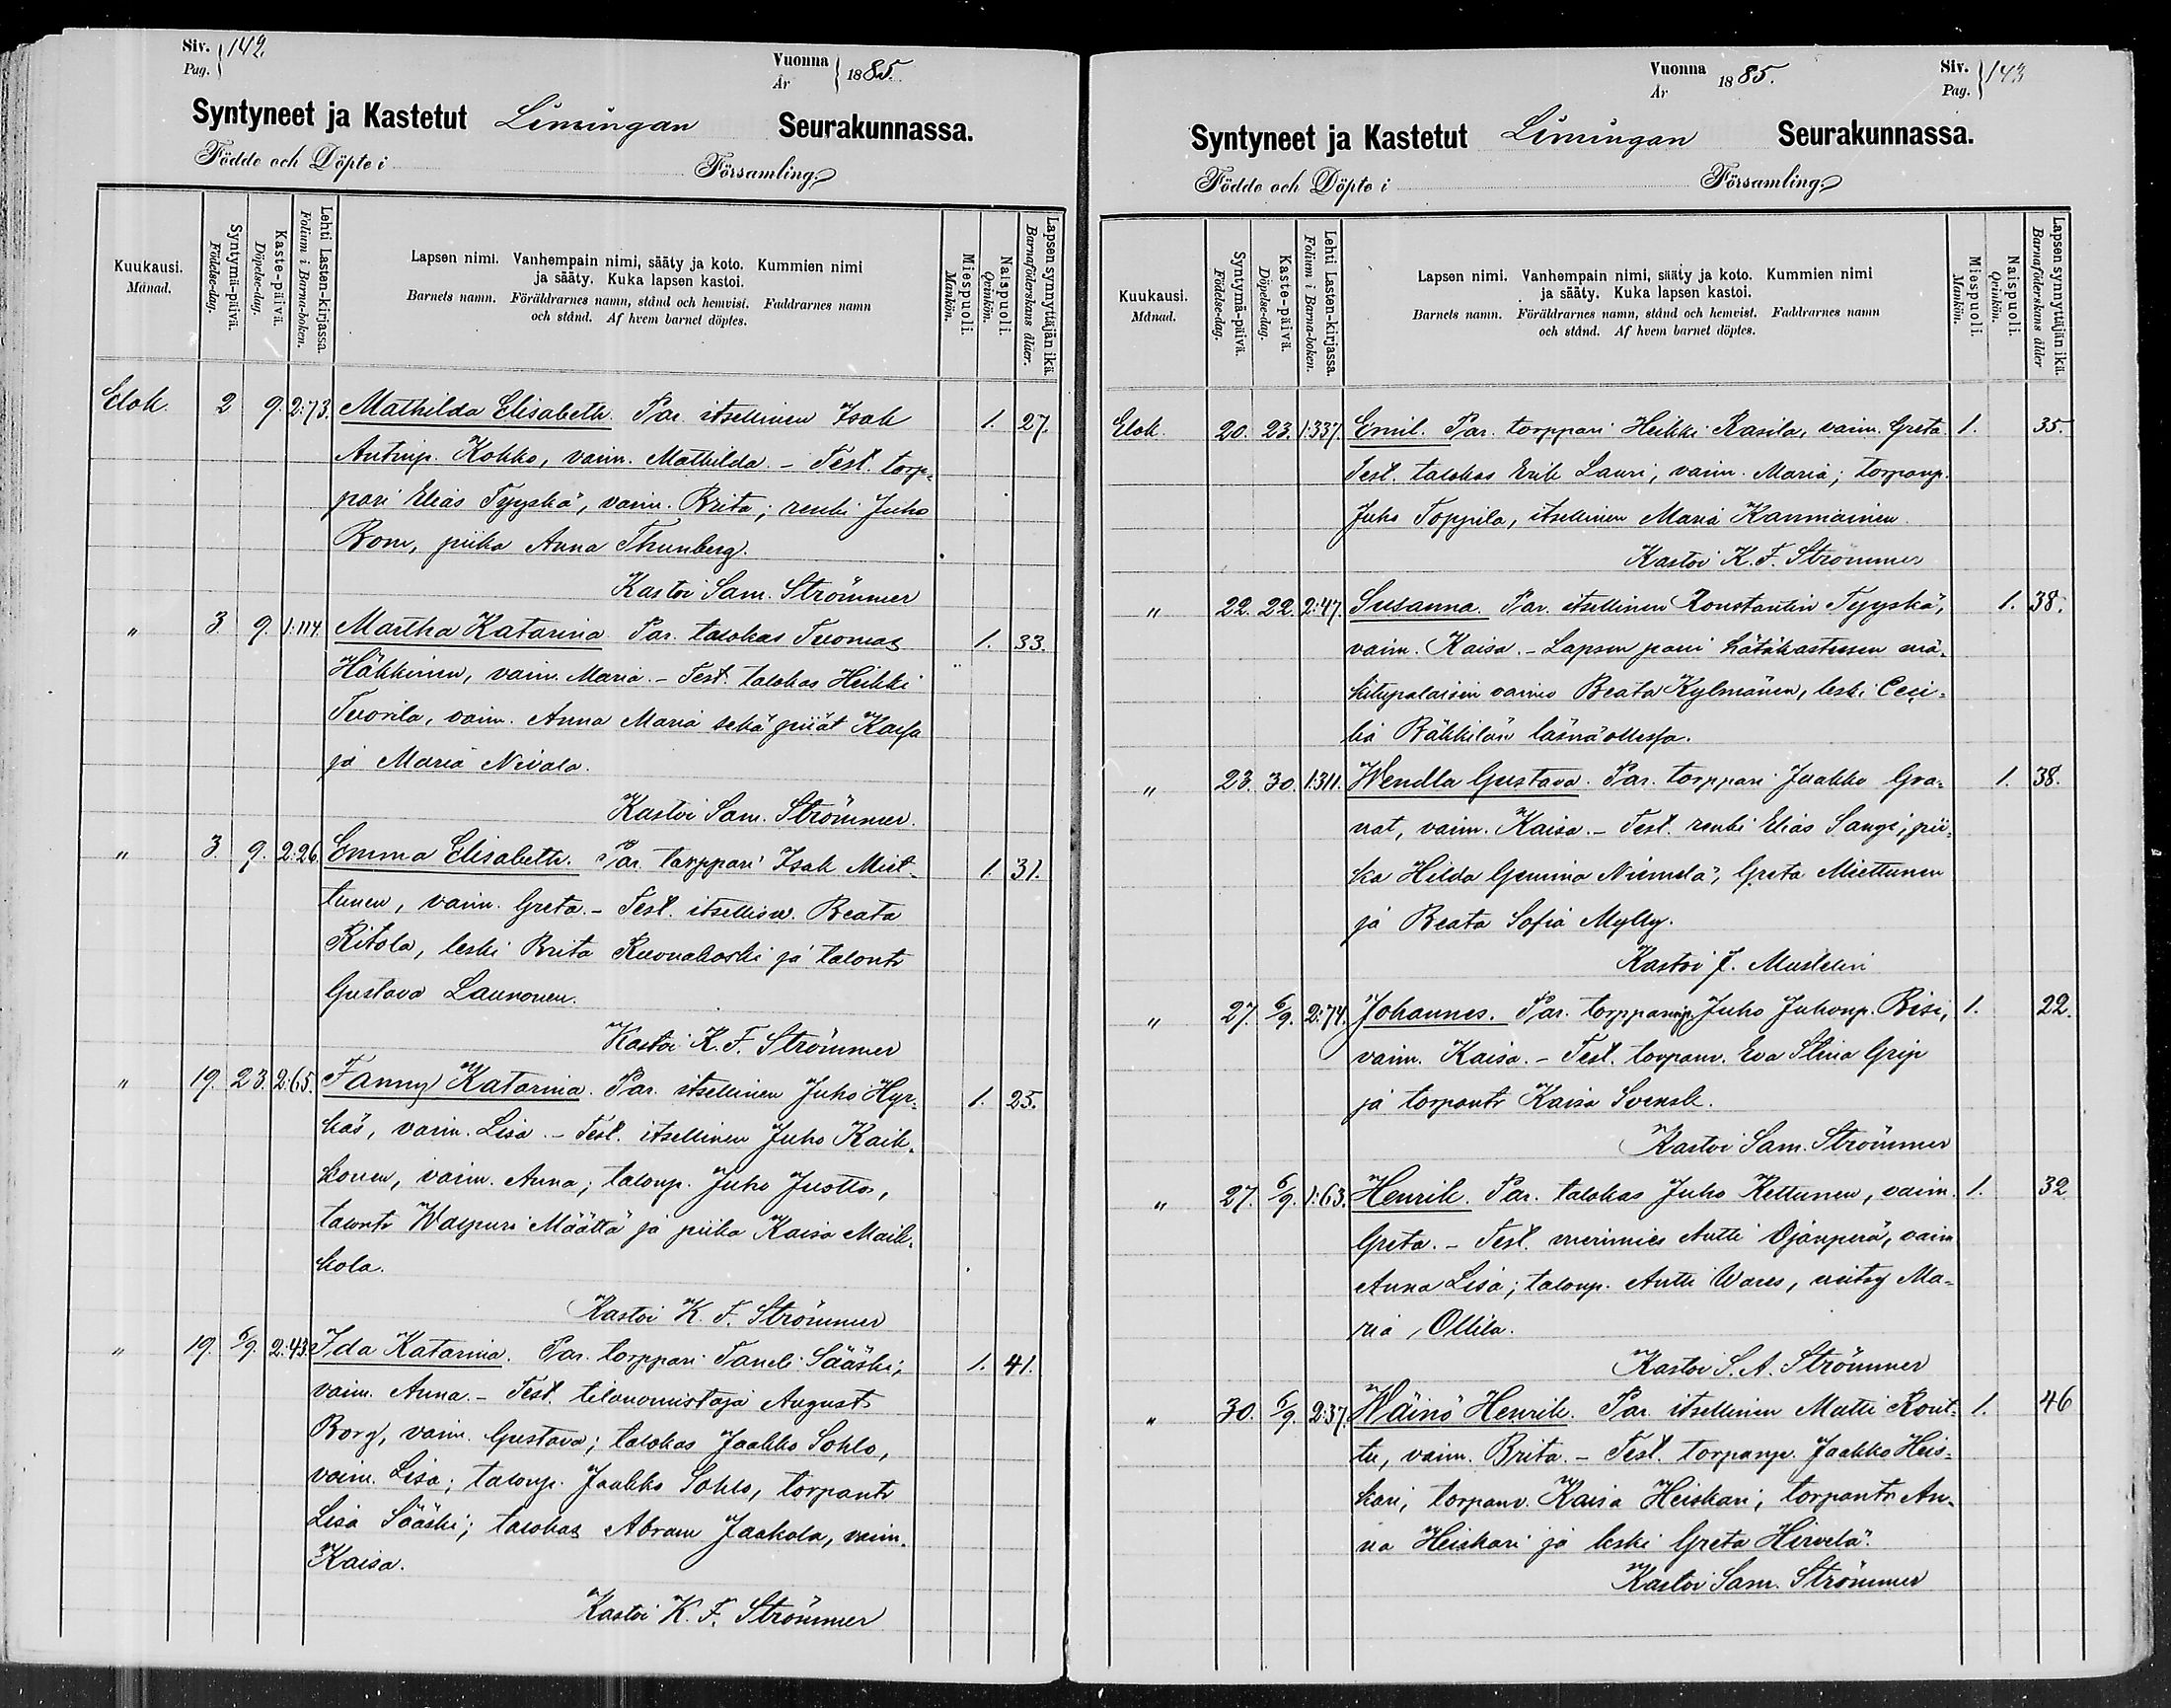 Siv. Pag. 142.
Vuonna År 1885.
Syntyneet ja Kastetut Limingan Seurakunnassa.
Födde och Döpte i Församling.
Kuukausi. Månad.
Syntymä-päivä. Födelse-dag.
Kaste-päivä. Döpelse-dag.
Lehti Lasten-kirjassa. Folium i Barna-boken.
Lapsen nimi. Vanhempain nimi, sääty ja koto. Kummien nimi
ja sääty. Kuka lapsen kastoi.
Barnets namn. Föräldrarnes namn, stånd och hemvist. Faddrarnes namn
och stånd. Af hvem barnet döptes.
Miespuoli. Mankön.
Naispuoli. Qvinkön.
Lapsen synnyttäjän ikä. Barnaföderskans ålder.
Elok. 2 9. 2:73. Mathilda Elisabeth. Par. itsellinen Isak 1. 27.
Antinp. Kokko, vaim. Mathilda. - Test. torp-
pari Elias Tyyskä, vaim. Brita; renki Juho
Rom, piika Anna Thunberg.
Kastoi Sam. Strömmer
" 3. 9. 1:114. Martha Katarina Par. talokas Tuomas 1. 33.
Häkkinen, vaim. Maria. - Test. talokas Heikki
Tuorila, vaim. Anna Maria sekä piiat Kaisa
ja Maria Nivala.
Kastoi Sam. Strömmer.
" 3. 9. 2:26. Emma Elisabeth. Par. torppari Isak Miet- 1. 31.
tunen, vaim. Greta. - Test. itsellisv. Beata
Ritola, leski Brita Ruonakoski ja talontr
Gustava Launonen.
Kastoi K. F. Strömmer
" 19. 23. 2:65. Fanny Katarina. Par. itsellinen Juho Hyr- 1. 25.
käs, vaim. Lisa. - Test. itsellinen Juho Kaik-
konen, vaim. Anna; talonp. Juho Juotlos,
talontr Walpuri Määttä ja piika Kaisa Maik-
kola.
Kastoi K. F. Strömmer
" 19. 6/9. 2:43. Ida Katarina. Par. torppari Taneli Sääski, 1. 41.
vaim. Anna. - Test. tilanomistaja August
Borg, vaim. Gustava; talokas Jaakko Sohlo,
vaim. Lisa; talonp. Jaakko Sohlo, torpantr
Lisa Sääski; talokas Abram Jaakola, vaim.
Kaisa.
Kastoi K. F. Strömmer
Vuonna År 1885.
Siv. Pag. 143
Syntyneet ja Kastetut Limingan Seurakunnassa.
Födde och Döpte i Församling.
Kuukausi. Månad.
Syntymä-päivä. Födelse-dag.
Kaste-päivä. Döpelse-dag.
Lehti Lasten-kirjassa. Folium i Barna-boken.
Lapsen nimi. Vanhempain nimi, sääty ja koto. Kummien nimi
ja sääty. Kuka lapsen kastoi.
Barnets namn. Föräldrarnes namn, stånd och hemvist. Faddrarnes namn
och stånd. Af hvem barnet döptes.
Miespuoli. Mankön.
Naispuoli. Qvinkön.
Lapsen synnyttäjän ikä. Barnaföderskans ålder
Elok. 20. 23. 1:337. Emil. Par. torppari Heikki Rasila, vaim. Greta. 1. 35.
Test. talokas Erik Lauri, vaim. Maria; torpanp.
Juho Toppila, itsellinen Maria Kanniainen.
Kastoi K. F. Strömmer
" 22. 22. 2:47. Susanna. Par. itsellinen Konstantin Tyyskä, 1. 38.
vaim. Kaisa. - Lapsen pani hätäkasteesen mä-
kitupalaisen vaimo Beata Kylmänen, leski Ceci-
lia Räkkilän läsnäollessa.
" 23. 30. 1:311. Wendla Gustava. Par. torppari Jaakko Gra- 1. 38.
nat, vaim. Kaisa. - Test. renki Elias Sangi, pii-
ka Hilda Gemina Niemelä, Greta Miettunen
ja Beata Sofia Mylly.
Kastoi J. Mustelin
" 27. 6/9. 2:74. Johannes. Par. torppanp. Juho Juhonp. Risi, 1. 22.
vaim. Kaisa. - Test. torpanv. Eva Stina Grip
ja torpantr Kaisa Svensk.
Kastoi Sam. Strömmer
" 27. 6/9. 1:63. Henrik. Par. talokas Juho Kettunen, vaim. 1. 32
Greta. - Test. merimies Antti Ojanperä, vaim
Anna Lisa; talonp. Antti Wares, neitsy Ma-
ria Ollila.
Kastoi S. A. Strömmer
" 30. 6/9. 2:37. Wäinö Henrik. Par. itsellinen Matti Rout- 1. 46
tu, vaim. Brita. - Test. torpanp. Jaakko Heis-
kari, torpanv. Kaisa Heiskari, torpantr An-
na Heiskari ja leski Greta Hirvelä.
Kastoi Sam. Strömmer